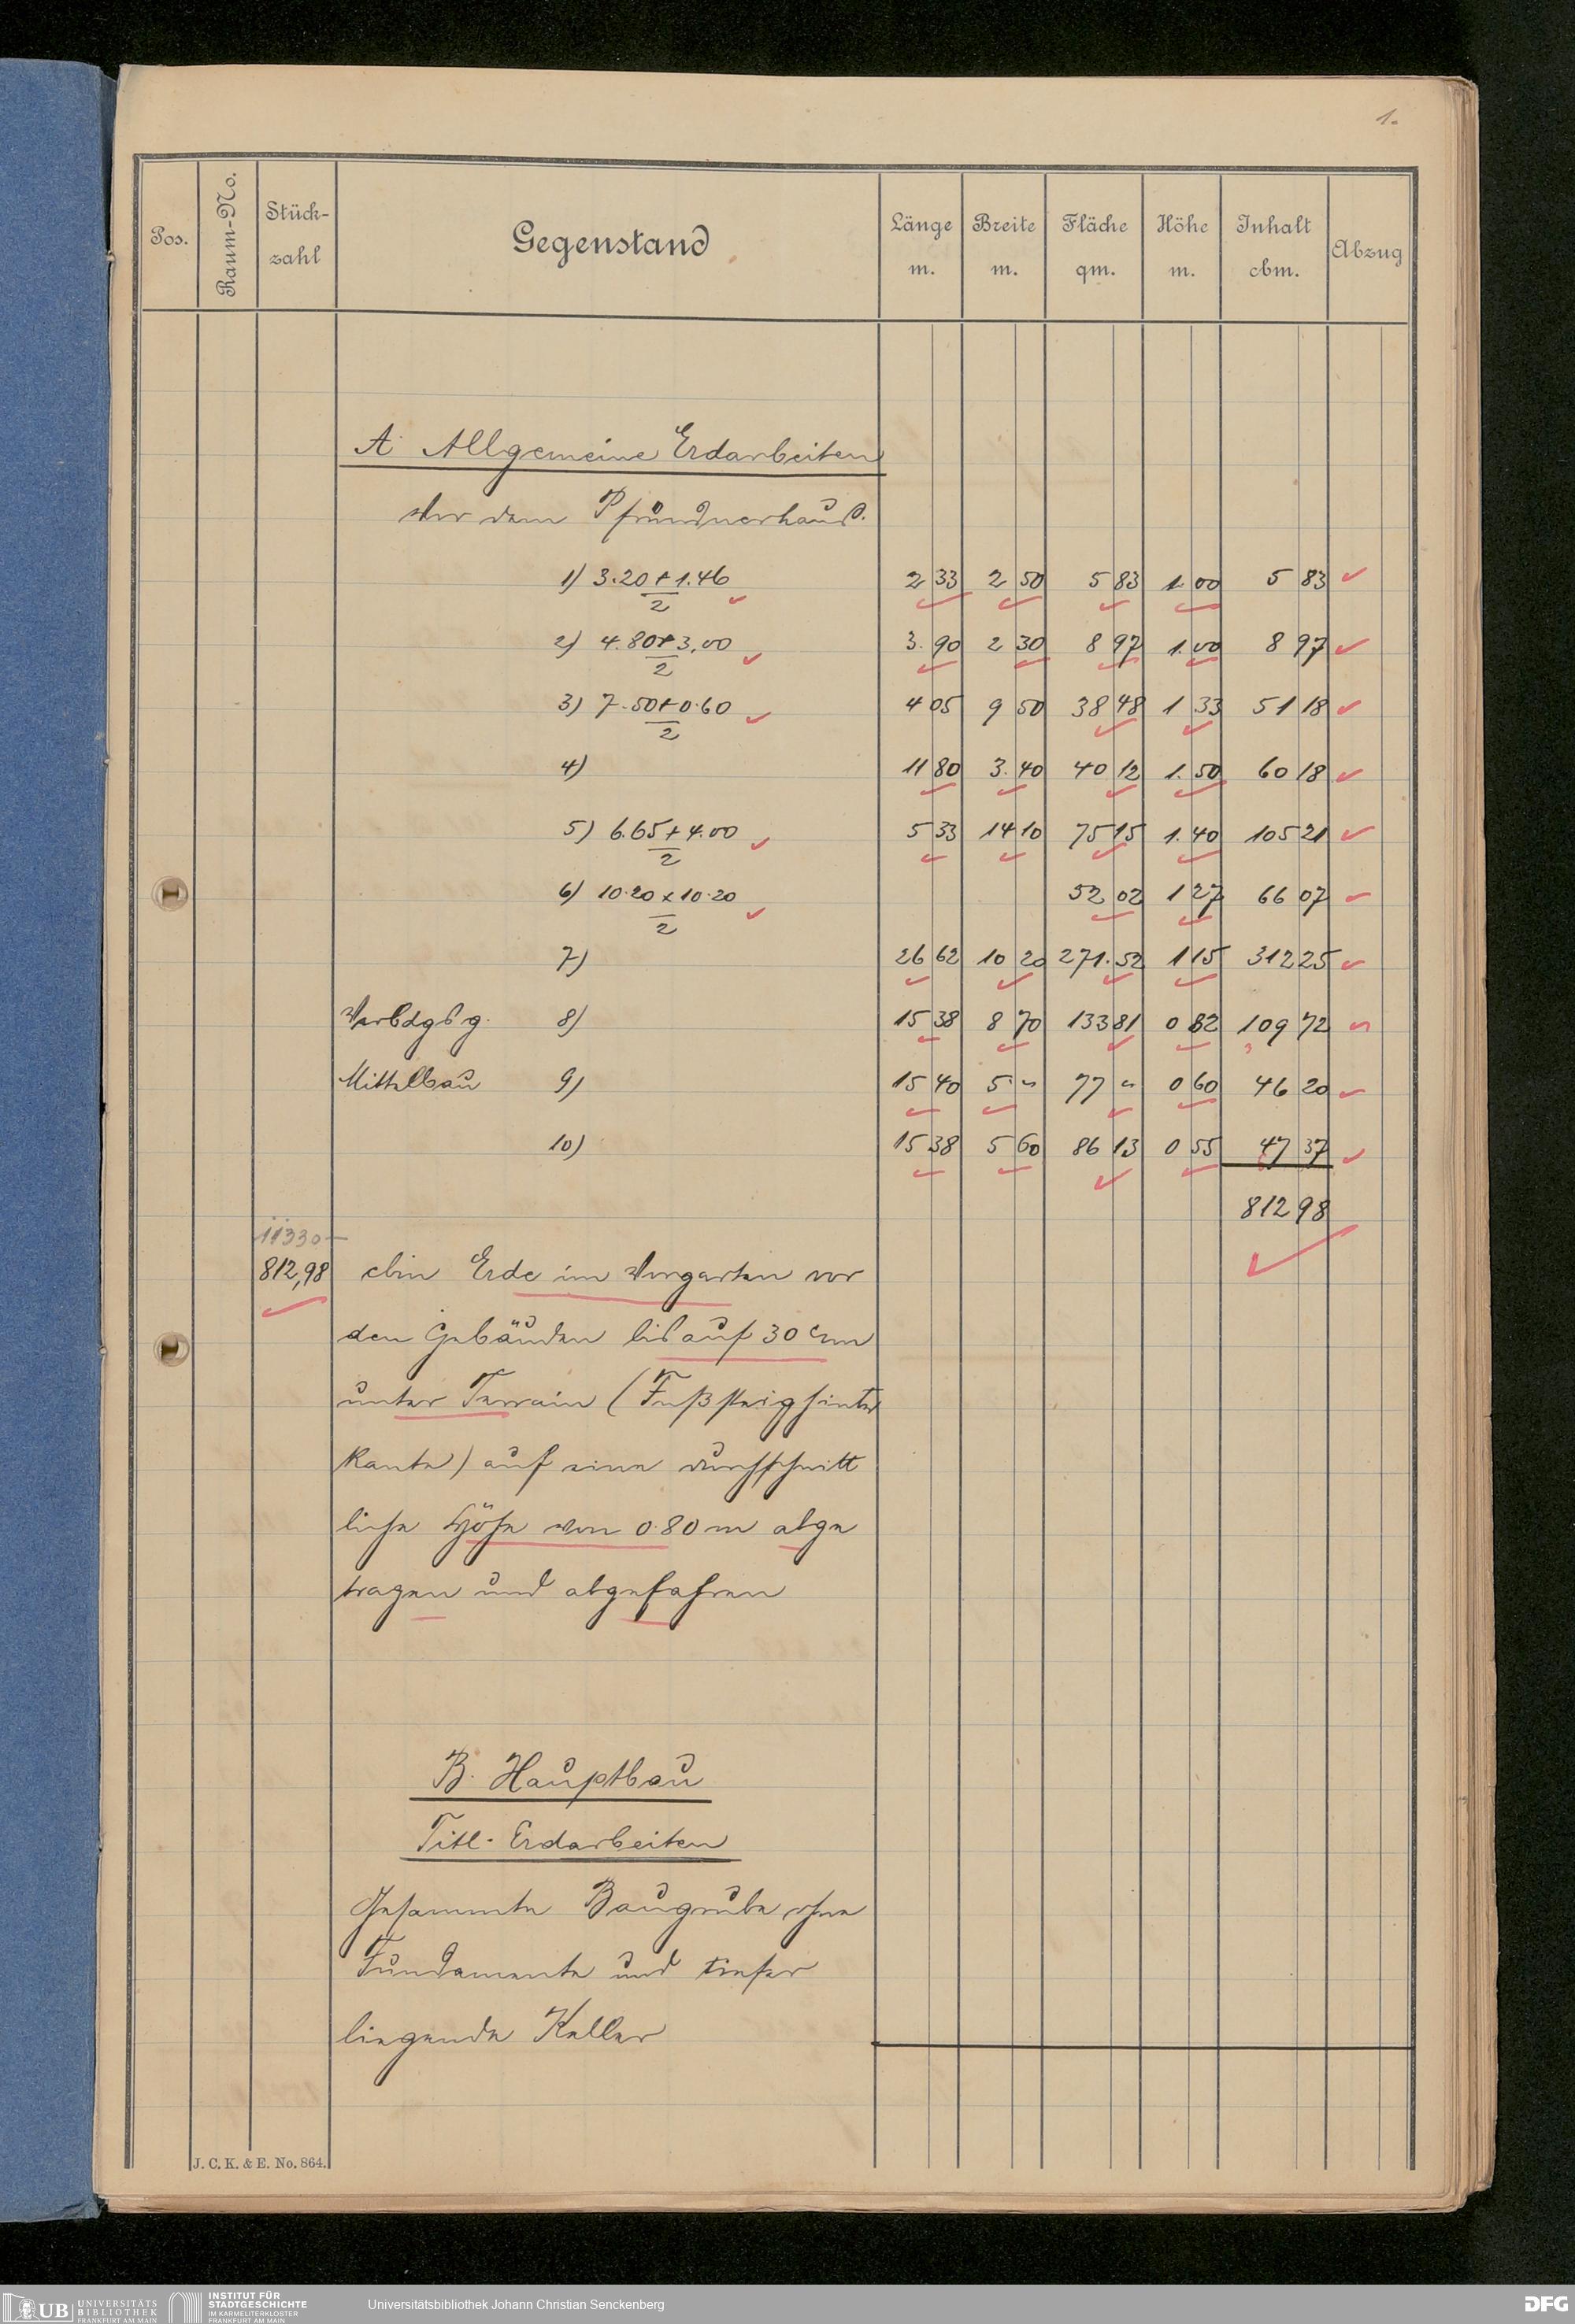 1.
Pos.
Raum-No.
Stück-
zahl
Gegenstand
Länge
m.
Breite
m.
Fläche
qm.
Höhe
m.
Inhalt
cbm.
Abzug
A. Allgemeine Erdarbeiten
Vor dem Pfründnerhaus.
1) 3.20+1.46 2 33 2 50 5 83 1.00 5 83
2
2) 4.80+3,00 3.90 2 30 8 97 1.00 8 97
2
3) 7.50+0.60 4 05 9 50 38 48 1 33 51 18
2
4) 11 80 3.40 40 12 1.50 60 18
5) 6.65+4.00 5 33 14 10 75 15 1.40 105 21
2
6) 10.20 x 10.20 52 02 1 27 66 07
2
7) 26 62 10 20 271.52 1 15 312 25
8) 15 38 8 70 133 81 0 82 109 72
Mittelbau 9) 15 40 5 " 77 " 0 60 46 20
10) 15 38 5 60 86 13 0 55 47 37
812 98
11330 —
812,98 cbm Erde im Vorgarten vor
den Gebäuden bis auf 30 cm
unter Terrain (Fußsteighinter
kante) auf eine durchschnitt
liche Höhe von 0.80 m abge
tragen und abgefahren
B. Hauptbau
Titl. Erdarbeiten
Gesammte Baugrube ohne
Fundamente und tiefer
liegende Keller
J. C. K. & E. No. 864.
UB UNIVERSITÄTS
BIBLIOTHEK
FRANKFURT AM MAIN
INSTITUT FÜR
STADTGESCHICHTE
IM KARMELITERKLOSTER
FRANKFURT AM MAIN
Universitätsbibliothek Johann Christian Senckenberg
DFG